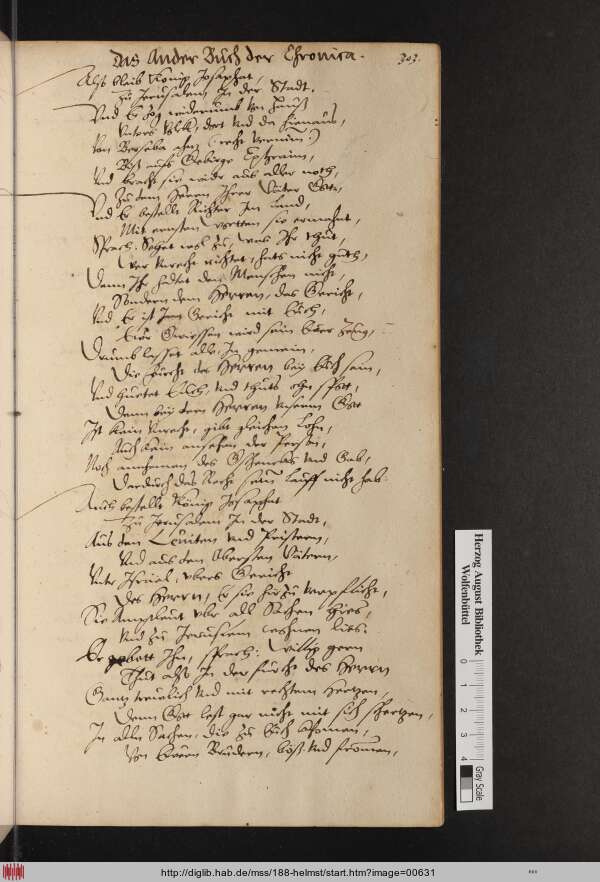 Das Ander Buch der Chronica.
303.
Also bleib König Josaphat,
Zu Jerusalem In der Stadt.
Und Er zog widerumb von Hauß
Unters Volck, dort und da hienaus,
Von Berseba ahn (recht vernim)
Biß aufs Gebirge Ephraim,
Und bracht sie wider aus aller noth,
Zu dem Herrn Ihrer Väter Gott,
Und Er bestelt Richter Im Land,
Mit ernsten Wortten sie ermahnt,
Sprach: Sehet wol zu, was Ihr thut,
Wer Unrecht richtet, hats nicht gutt,
Denn Ihr haltet den Menschen nicht,
Sondern dem Herren, das Gericht,
Und Er ist Im Gericht mit Euch,
Eur Gewissen wird sein Euer Zeug,
Drumb lasset alle In gemein,
Die Furcht des Herren bey Euch sein,
Und huetet Euch, und thuts ohn Spott,
Denn bey dem Herren Unserm Gott
Ist kein Unrecht, gibt gleichen Lohn,
Auch kein ansehen der Person,
Noch annhemen des Geschencks und Gab,
Dardurch das Recht sein Lauff nicht hab.
Auch bestelt König Josaphat
Zu Jerusalem In der Stadt,
Aus den Leuiten und Pristern,
Und aus den Obersten Vätern,
Unter Israel, ubers Gericht
Des Herrn, Er sie hirzu verpflicht,
Die Amptleut uber all Sachen
Und zu Jerusalem wohnen lies.
Er gebott Ihn, sprach: Willig gern
Thut also In der furcht des Herrn
Gantz treulich und mit rechtem Hertzen,
Denn Gott lest gar nicht mit sich schertzen,
In allen Sachen, die zu Euch kommen,
Von Euern Brüdern, böß und frommen,
Herzog August Bibliothek
Wolfenbüttel
0 1 2 3 4
Gray Scale
http://diglib.hab.de/mss/188-helmst/start.htm?image=00631